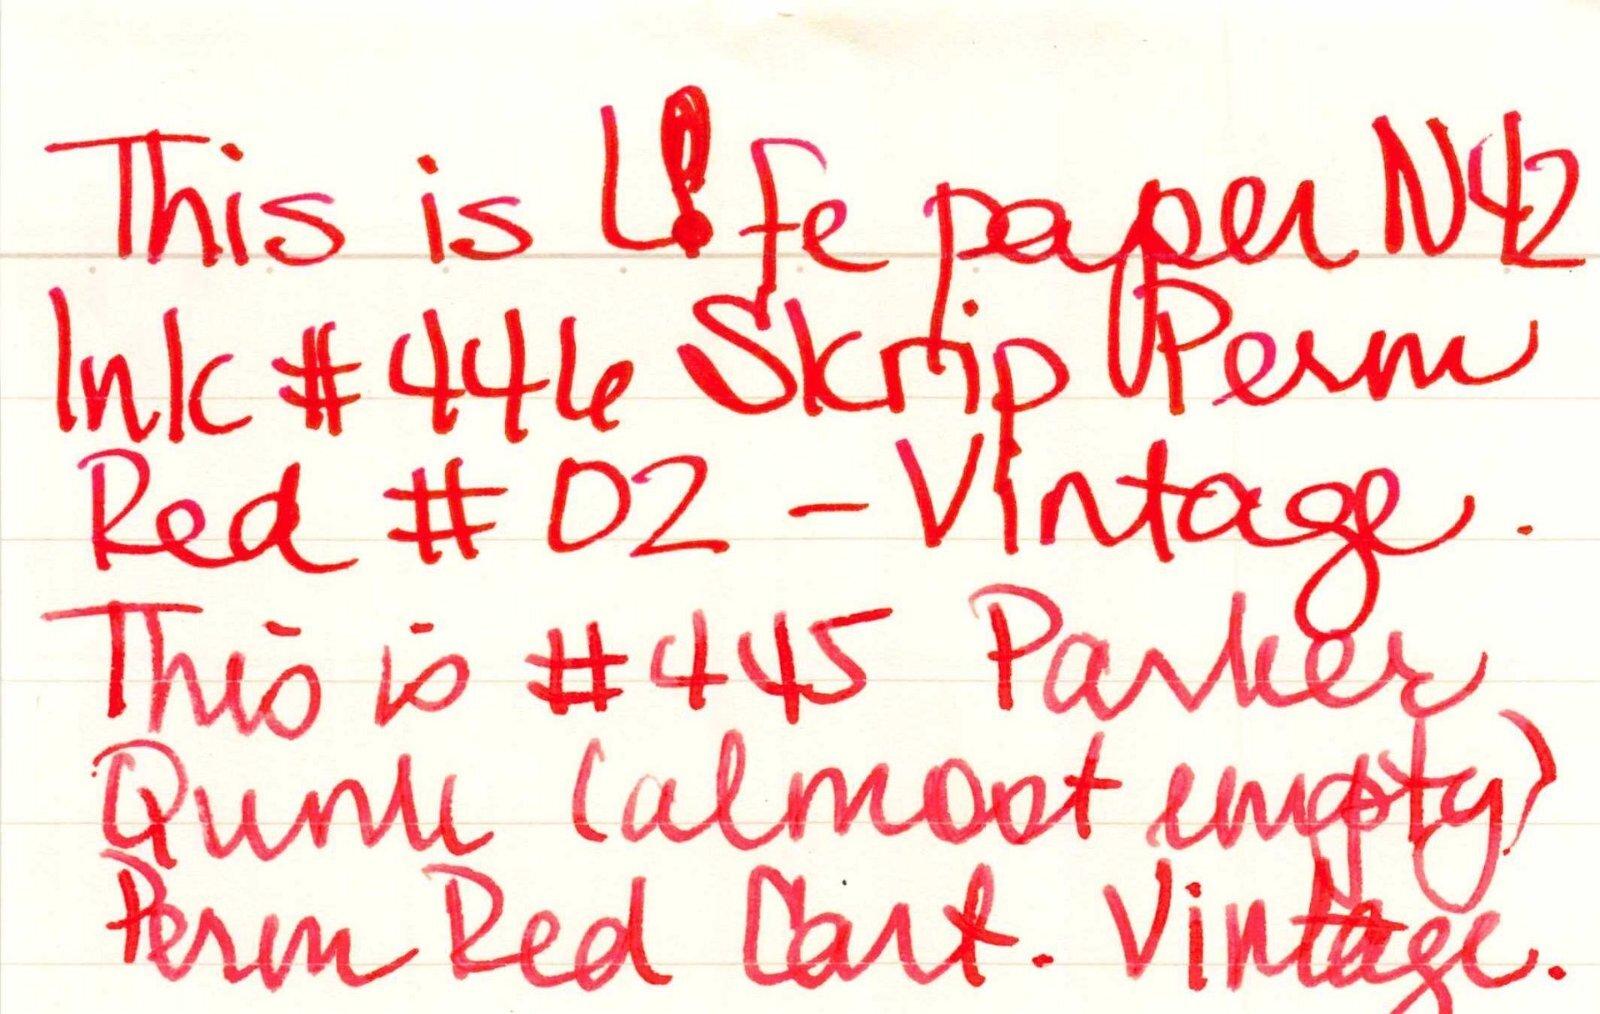 This is L!fe paper N42
Ink #446 Skrip Perm
Red #02 - Vintage.
This is #445 Parker
Quink (almost empty)
Perm Red Cart. Vintage.